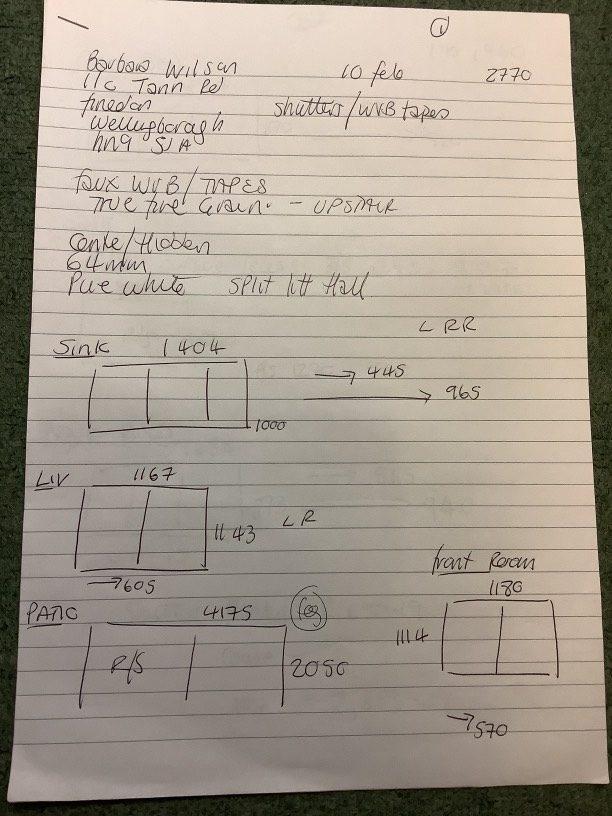 ①
Barbara Wilson 10 feb 2770
11c Tann Rd
finedon shutters/WVB tapes
Wellingboragh
nn9 5JA
faux WVB/TAPES
True fine Grain. - UPSTAIR
Centre/Hidden
64mm
Pure white split litt Hall
L RR
Sink 1404
→ 445
→ 965
1000
LIV 1167
1143 L R
→605
front Room
1180
1114
→570
PATIO 4175
R/S 2050